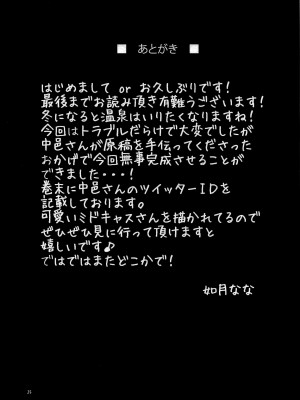 ■ あとがき ■
はじめまして or お久しぶりです！
最後までお読み頂き有難うございます！
冬になると温泉はいりたくなりますね！
今回はトラブルだらけで大変でしたが
中邑さんが原稿を手伝ってくださった
おかげで今回無事完成させることが
できました・・・！
巻末に中邑さんのツイッターIDを
記載しております。
可愛いミドキャスさんを描かれてるので
ぜひぜひ見に行って頂けますと
嬉しいです♪
ではではまたどこかで！
如月なな